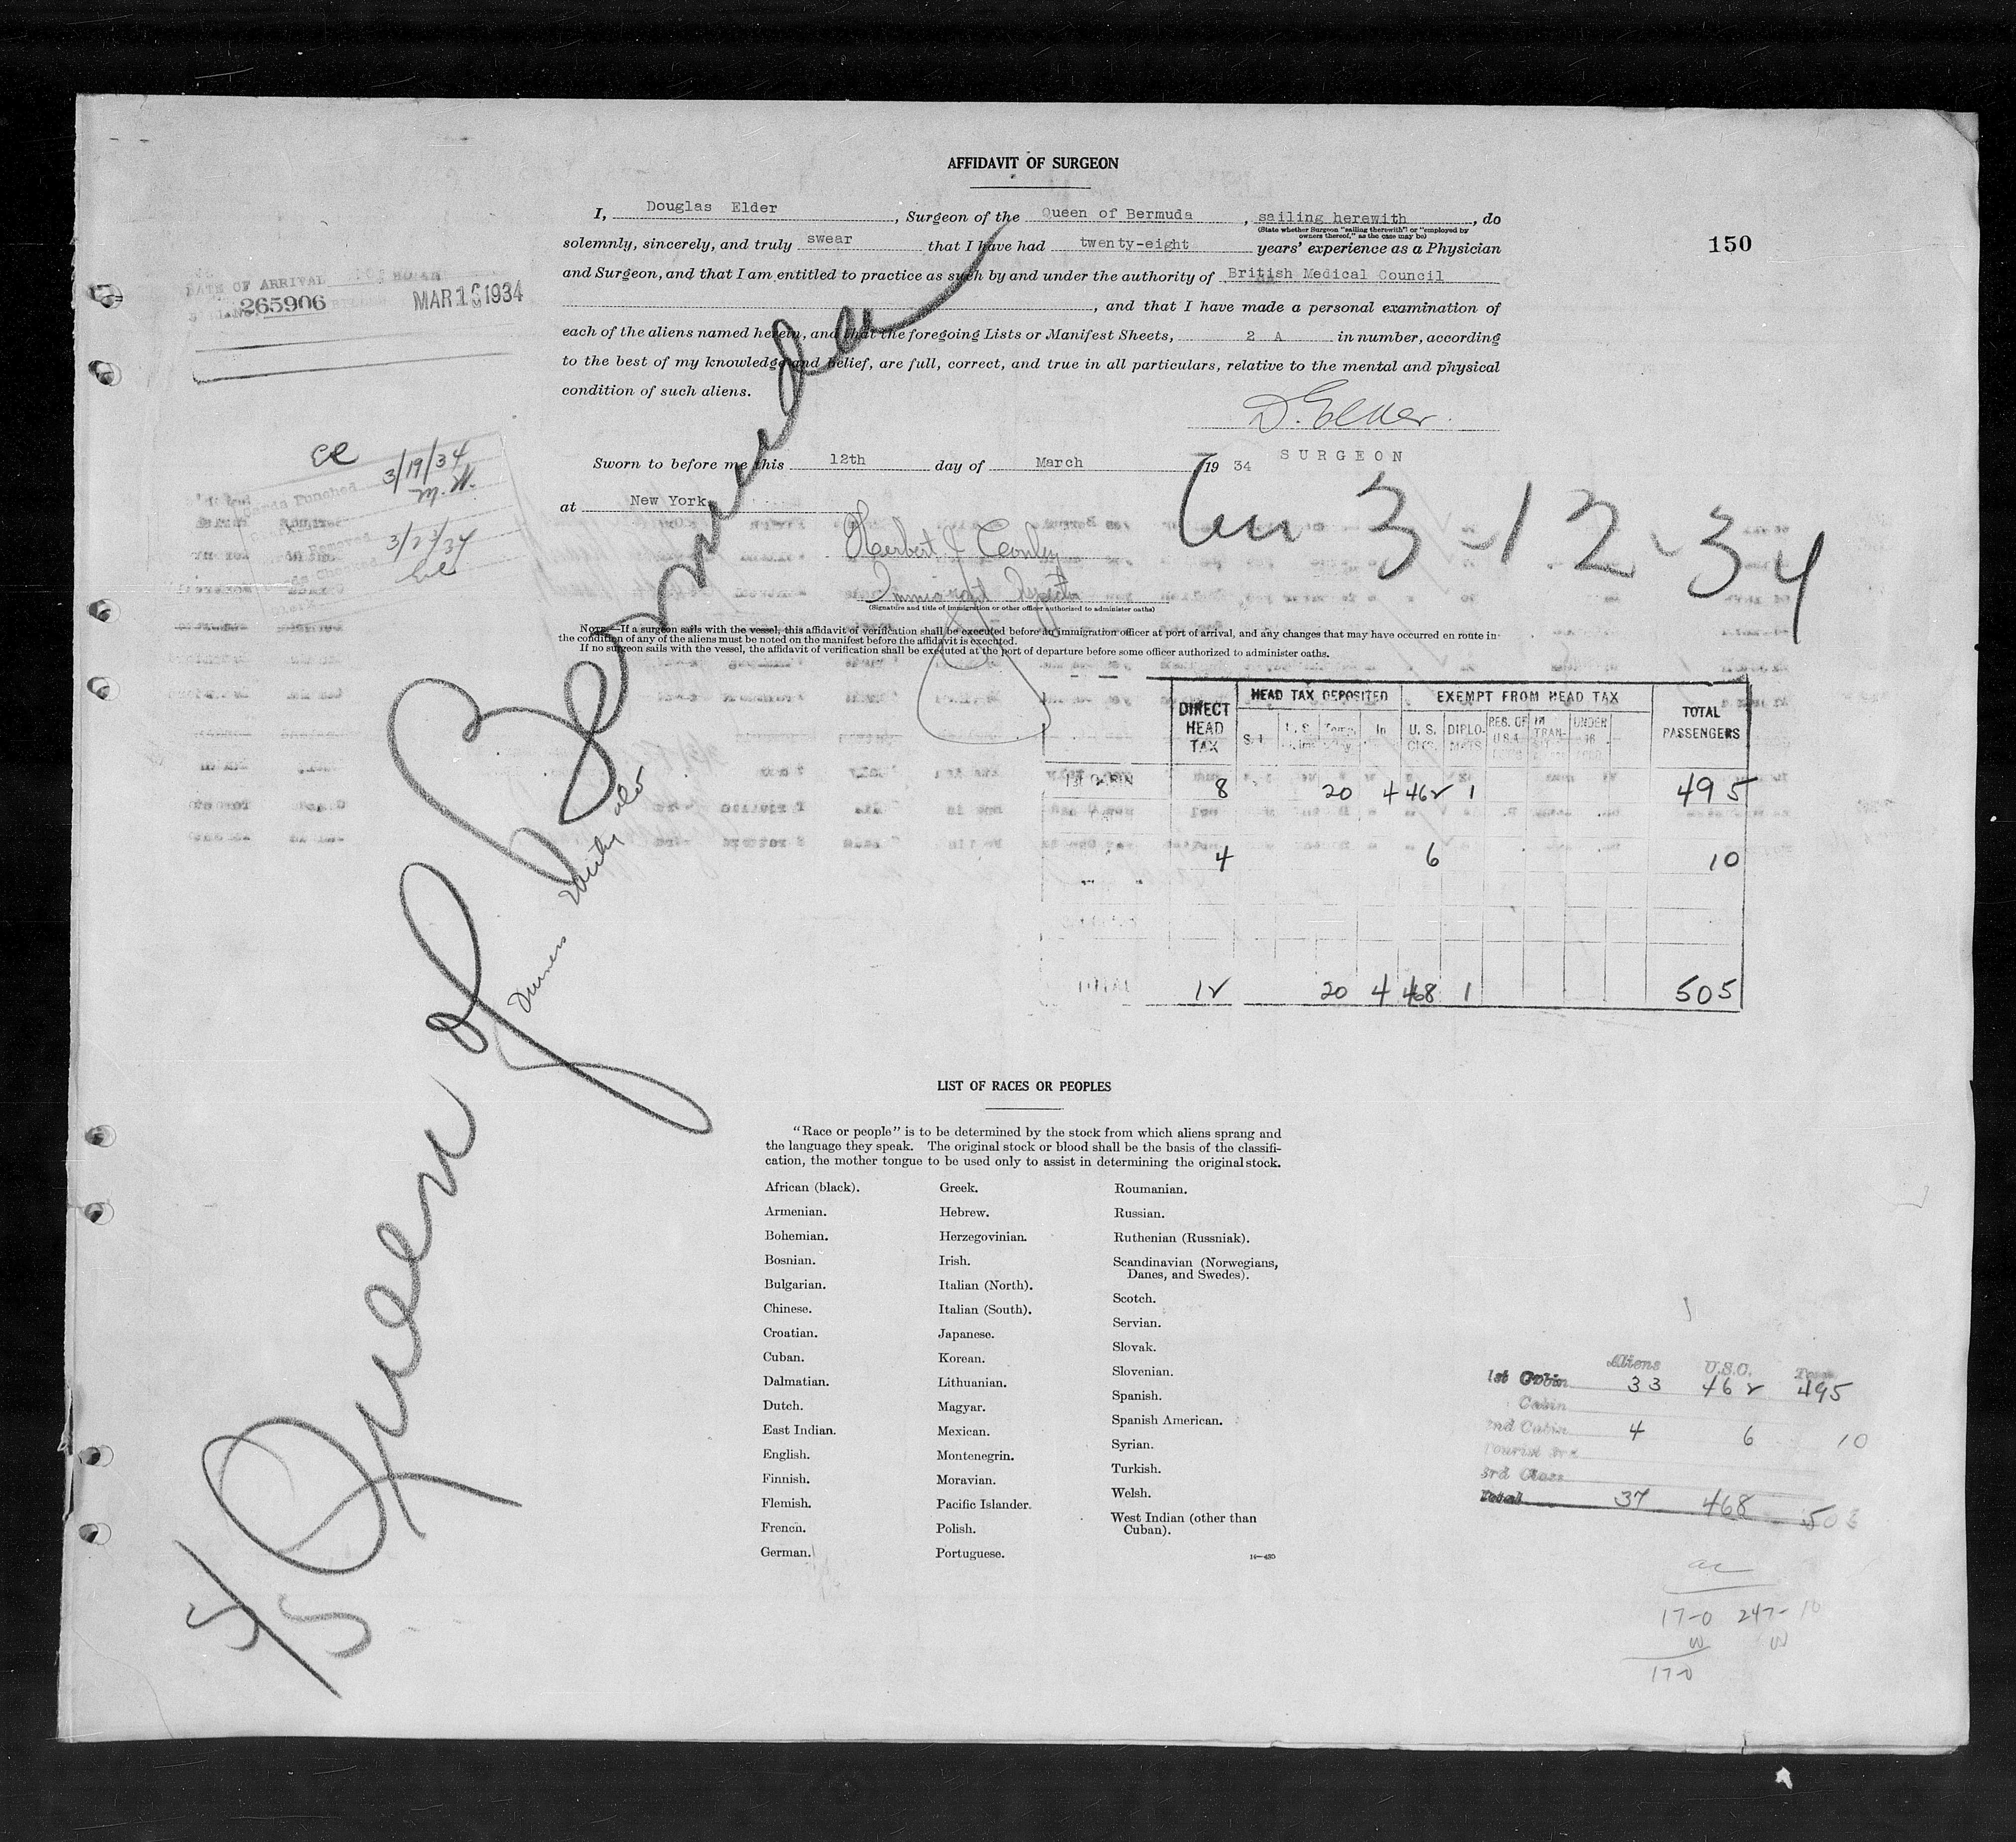 AFFIDAVIT OF SURGEON
150
I, Douglas Elder , Surgeon of the Queen of Bermuda , sailing herewith , do
(State whether Surgeon "sailing therewith" or "employed by
owners thereof," as the case may be)
solemnly, sincerely, and truly swear that I have had twenty-eight years' experience as a Physician
and Surgeon, and that I am entitled to practice as such by and under the authority of British Medical Council
, and that I have made a personal examination of
each of the aliens named herein, and that the foregoing Lists or Manifest Sheets, 2 A in number, according
to the best of my knowledge and belief, are full, correct, and true in all particulars, relative to the mental and physical
condition of such aliens.
D. Elder.
SURGEON
Sworn to before me this 12th day of March , 19 34
at New York
Herbert J. Conley
Immigrant Inspector
(Signature and title of immigration or other officer authorized to administer oaths)
NOTE.—If a surgeon sails with the vessel, this affidavit of verification shall be executed before an immigration officer at port of arrival, and any changes that may have occurred en route in
the condition of any of the aliens must be noted on the manifest before the affidavit is executed.
If no surgeon sails with the vessel, the affidavit of verification shall be executed at the port of departure before some officer authorized to administer oaths.
DATE OF ARRIVAL
265906 MAR 1 1934
ce
Cards Punched 3/19/34
M.H.
3/21/34
3-12-34
Queen of Bermuda
DIRECT HEAD TAX HEAD TAX DEPOSITED EXEMPT FROM HEAD TAX TOTAL PASSENGERS
S.I. U.S. In U.S. CITS. DIPLO-MATS RES. OF U.S.A. IN TRAN-SIT UNDER 16
1st CABIN 8 20 4 462 1 495
4 6 10
TOTAL 12 20 4 468 1 505
LIST OF RACES OR PEOPLES
"Race or people" is to be determined by the stock from which aliens sprang and
the language they speak. The original stock or blood shall be the basis of the classifi-
cation, the mother tongue to be used only to assist in determining the original stock.
African (black).
Armenian.
Bohemian.
Bosnian.
Bulgarian.
Chinese.
Croatian.
Cuban.
Dalmatian.
Dutch.
East Indian.
English.
Finnish.
Flemish.
French.
German.
Greek.
Hebrew.
Herzegovinian.
Irish.
Italian (North).
Italian (South).
Japanese.
Korean.
Lithuanian.
Magyar.
Mexican.
Montenegrin.
Moravian.
Pacific Islander.
Polish.
Portuguese.
Roumanian.
Russian.
Ruthenian (Russniak).
Scandinavian (Norwegians,
Danes, and Swedes).
Scotch.
Servian.
Slovak.
Slovenian.
Spanish.
Spanish American.
Syrian.
Turkish.
Welsh.
West Indian (other than
Cuban).
14—430
Aliens U.S.C. Total
1st Cabin 33 462 495
Cabin
2nd Cabin 4 6 10
Tourist 3rd
3rd Class
Total 37 468 505
17-0 247-10
17-0